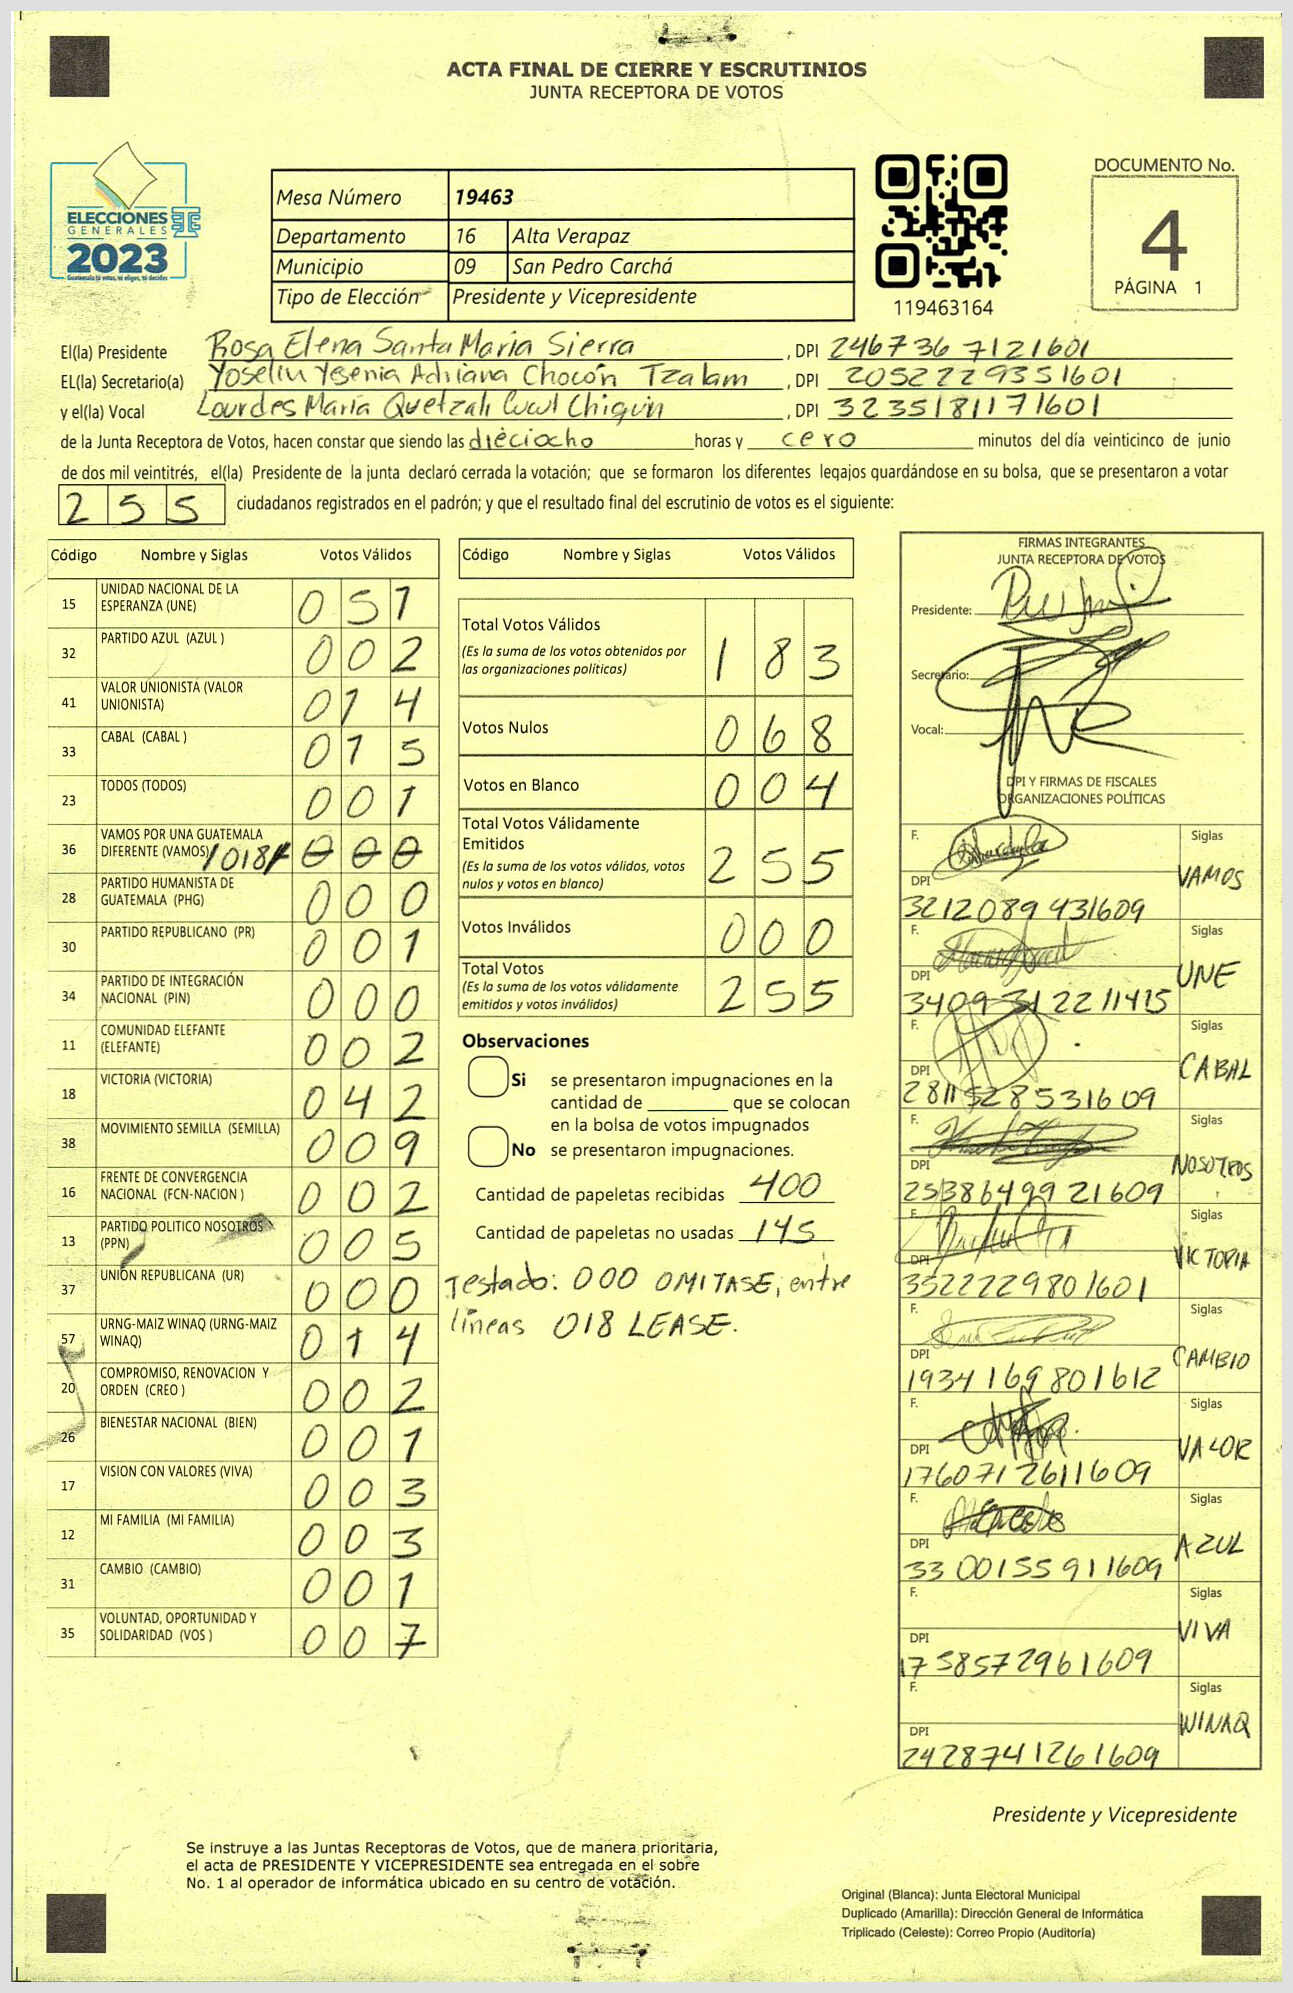 ACTA FINAL DE CIERRE Y ESCRUTINIOS
JUNTA RECEPTORA DE VOTOS
ELECCIONES
GENERALES
2023
Mesa Número 19463
Departamento 16 Alta Verapaz
Municipio 09 San Pedro Carchá
Tipo de Elección Presidente y Vicepresidente
119463164
DOCUMENTO No.
4
PÁGINA 1
El(la) Presidente Rosa Elena Santa María Sierra, DPI 246736 7121601
EL(la) Secretario(a) Yoselin Ysenia Adriana Chocón Tzalam, DPI 2052229351601
y el(la) Vocal Lourdes María Quetzali Cucul Chiquin, DPI 3235181171601
de la Junta Receptora de Votos, hacen constar que siendo las dieciocho horas y cero minutos del día veinticinco de junio
de dos mil veintitrés, el(la) Presidente de la junta declaró cerrada la votación; que se formaron los diferentes legajos quardándose en su bolsa, que se presentaron a votar
255 ciudadanos registrados en el padrón; y que el resultado final del escrutinio de votos es el siguiente:
Código Nombre y Siglas Votos Válidos
15 UNIDAD NACIONAL DE LA ESPERANZA (UNE) 051
32 PARTIDO AZUL (AZUL ) 002
41 VALOR UNIONISTA (VALOR UNIONISTA) 014
33 CABAL (CABAL ) 015
23 TODOS (TODOS) 001
36 VAMOS POR UNA GUATEMALA DIFERENTE (VAMOS) /018/ 000
28 PARTIDO HUMANISTA DE GUATEMALA (PHG) 000
30 PARTIDO REPUBLICANO (PR) 001
34 PARTIDO DE INTEGRACIÓN NACIONAL (PIN) 000
11 COMUNIDAD ELEFANTE (ELEFANTE) 002
18 VICTORIA (VICTORIA) 042
38 MOVIMIENTO SEMILLA (SEMILLA) 009
16 FRENTE DE CONVERGENCIA NACIONAL (FCN-NACION ) 002
13 PARTIDO POLITICO NOSOTROS (PPN) 005
37 UNIÓN REPUBLICANA (UR) 000
57 URNG-MAIZ WINAQ (URNG-MAIZ WINAQ) 014
20 COMPROMISO, RENOVACION Y ORDEN (CREO ) 002
26 BIENESTAR NACIONAL (BIEN) 001
17 VISION CON VALORES (VIVA) 003
12 MI FAMILIA (MI FAMILIA) 003
31 CAMBIO (CAMBIO) 001
35 VOLUNTAD, OPORTUNIDAD Y SOLIDARIDAD (VOS ) 007
Código Nombre y Siglas Votos Válidos
Total Votos Válidos 183
(Es la suma de los votos obtenidos por
las organizaciones políticas)
Votos Nulos 068
Votos en Blanco 004
Total Votos Válidamente
Emitidos 255
(Es la suma de los votos válidos, votos
nulos y votos en blanco)
Votos Inválidos 000
Total Votos 255
(Es la suma de los votos válidamente
emitidos y votos inválidos)
Observaciones
Si se presentaron impugnaciones en la
cantidad de ________ que se colocan
en la bolsa de votos impugnados
No se presentaron impugnaciones.
Cantidad de papeletas recibidas 400
Cantidad de papeletas no usadas 145
Testado: 000 OMITASE, entre
líneas 018 LEASE.
FIRMAS INTEGRANTES
JUNTA RECEPTORA DE VOTOS
Presidente:
Secretario:
Vocal:
DPI Y FIRMAS DE FISCALES
ORGANIZACIONES POLÍTICAS
F. Siglas
DPI VAMOS
3212089431609
F. Siglas
DPI UNE
3409312211415
F. Siglas
DPI CABAL
2811528531609
F. Siglas
DPI NOSOTROS
2538649921609
F. Siglas
DPI VICTORIA
3522229801601
F. Siglas
DPI CAMBIO
1934169801612
F. Siglas
DPI VALOR
1760712611609
F. Siglas
DPI AZUL
3300155911609
F. Siglas
DPI VIVA
1758572961609
F. Siglas
DPI WINAQ
2428741261609
Presidente y Vicepresidente
Se instruye a las Juntas Receptoras de Votos, que de manera prioritaria,
el acta de PRESIDENTE Y VICEPRESIDENTE sea entregada en el sobre
No. 1 al operador de informática ubicado en su centro de votación.
Original (Blanca): Junta Electoral Municipal
Duplicado (Amarilla): Dirección General de Informática
Triplicado (Celeste): Correo Propio (Auditoría)